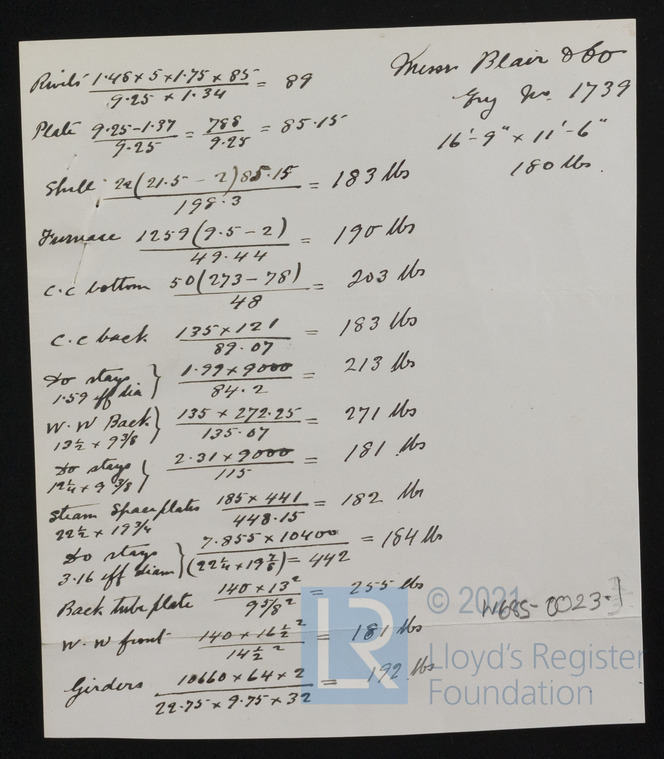 Messrs Blair & Co
Eng No. 1739
16'-9" × 11'-6"
180 lbs.
Rivets 1.46 × 5 × 1.75 × 85 / 9.25 × 1.34 = 89
Plate 9.25 - 1.37 / 9.25 = 788 / 9.25 = 85.15
Shell 22(21.5 - 2)85.15 / 198.3 = 183 lbs
Furnace 1259(9.5 - 2) / 49.44 = 190 lbs
C.C bottom 50(273 - 78) / 48 = 203 lbs
C.C back 135 × 121 / 89.07 = 183 lbs
Do stays 1.99 × 9000 / 84.2 = 213 lbs
1.59 eff dia
W.W Back 135 × 272.25 / 135.07 = 271 lbs
13½ × 9⅜
Do stays 2.31 × 9000 / 115 = 181 lbs
12¼ × 9⅜
Steam Space plates 185 × 441 / 448.15 = 182 lbs
22½ × 19¾
Do stays 7.855 × 10400 / (22¼ × 19⅞) = 442 = 184 lbs
3.16 eff diam
Back tube plate 140 × 13² / 9⅝² = 255 lbs
W.W front 140 × 16½² / 14½² = 181 lbs
Girders 10660 × 64 × 2 / 22.75 × 9.75 × 32 = 192 lbs
W685-0023-1
© 2021
Lloyd's Register
Foundation
LR